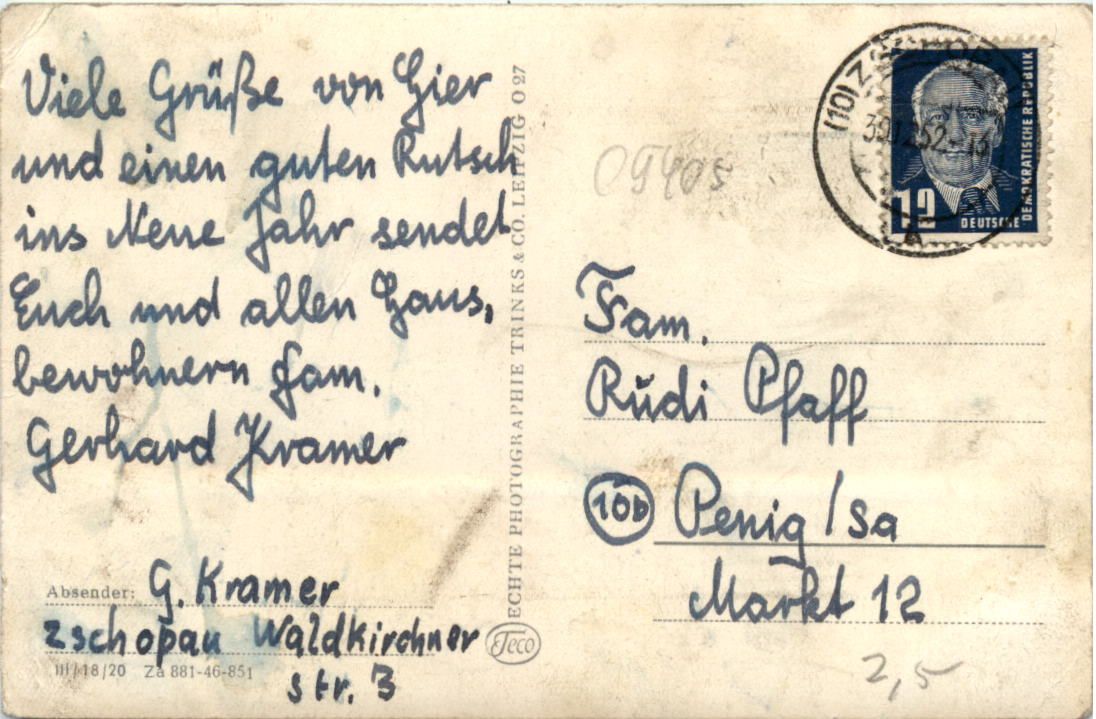 Viele Grüße von hier
und einen guten Rutsch
ins Neue Jahr sendet
Euch und allen Haus,
bewohnern Fam.
Gerhard Kramer
Absender: G. Kramer
Zschopau Waldkirchner
str. 3
III/18/20 Za 881-46-851
ECHTE PHOTOGRAPHIE TRINKS & CO. LEIPZIG O 27
Teco
09405
(10) ZSCHOPAU
30.12.52-13
A
12
DEUTSCHE
DEMOKRATISCHE REPUBLIK
Fam.
Rudi Pfaff
10b Penig / Sa
Markt 12
2,5